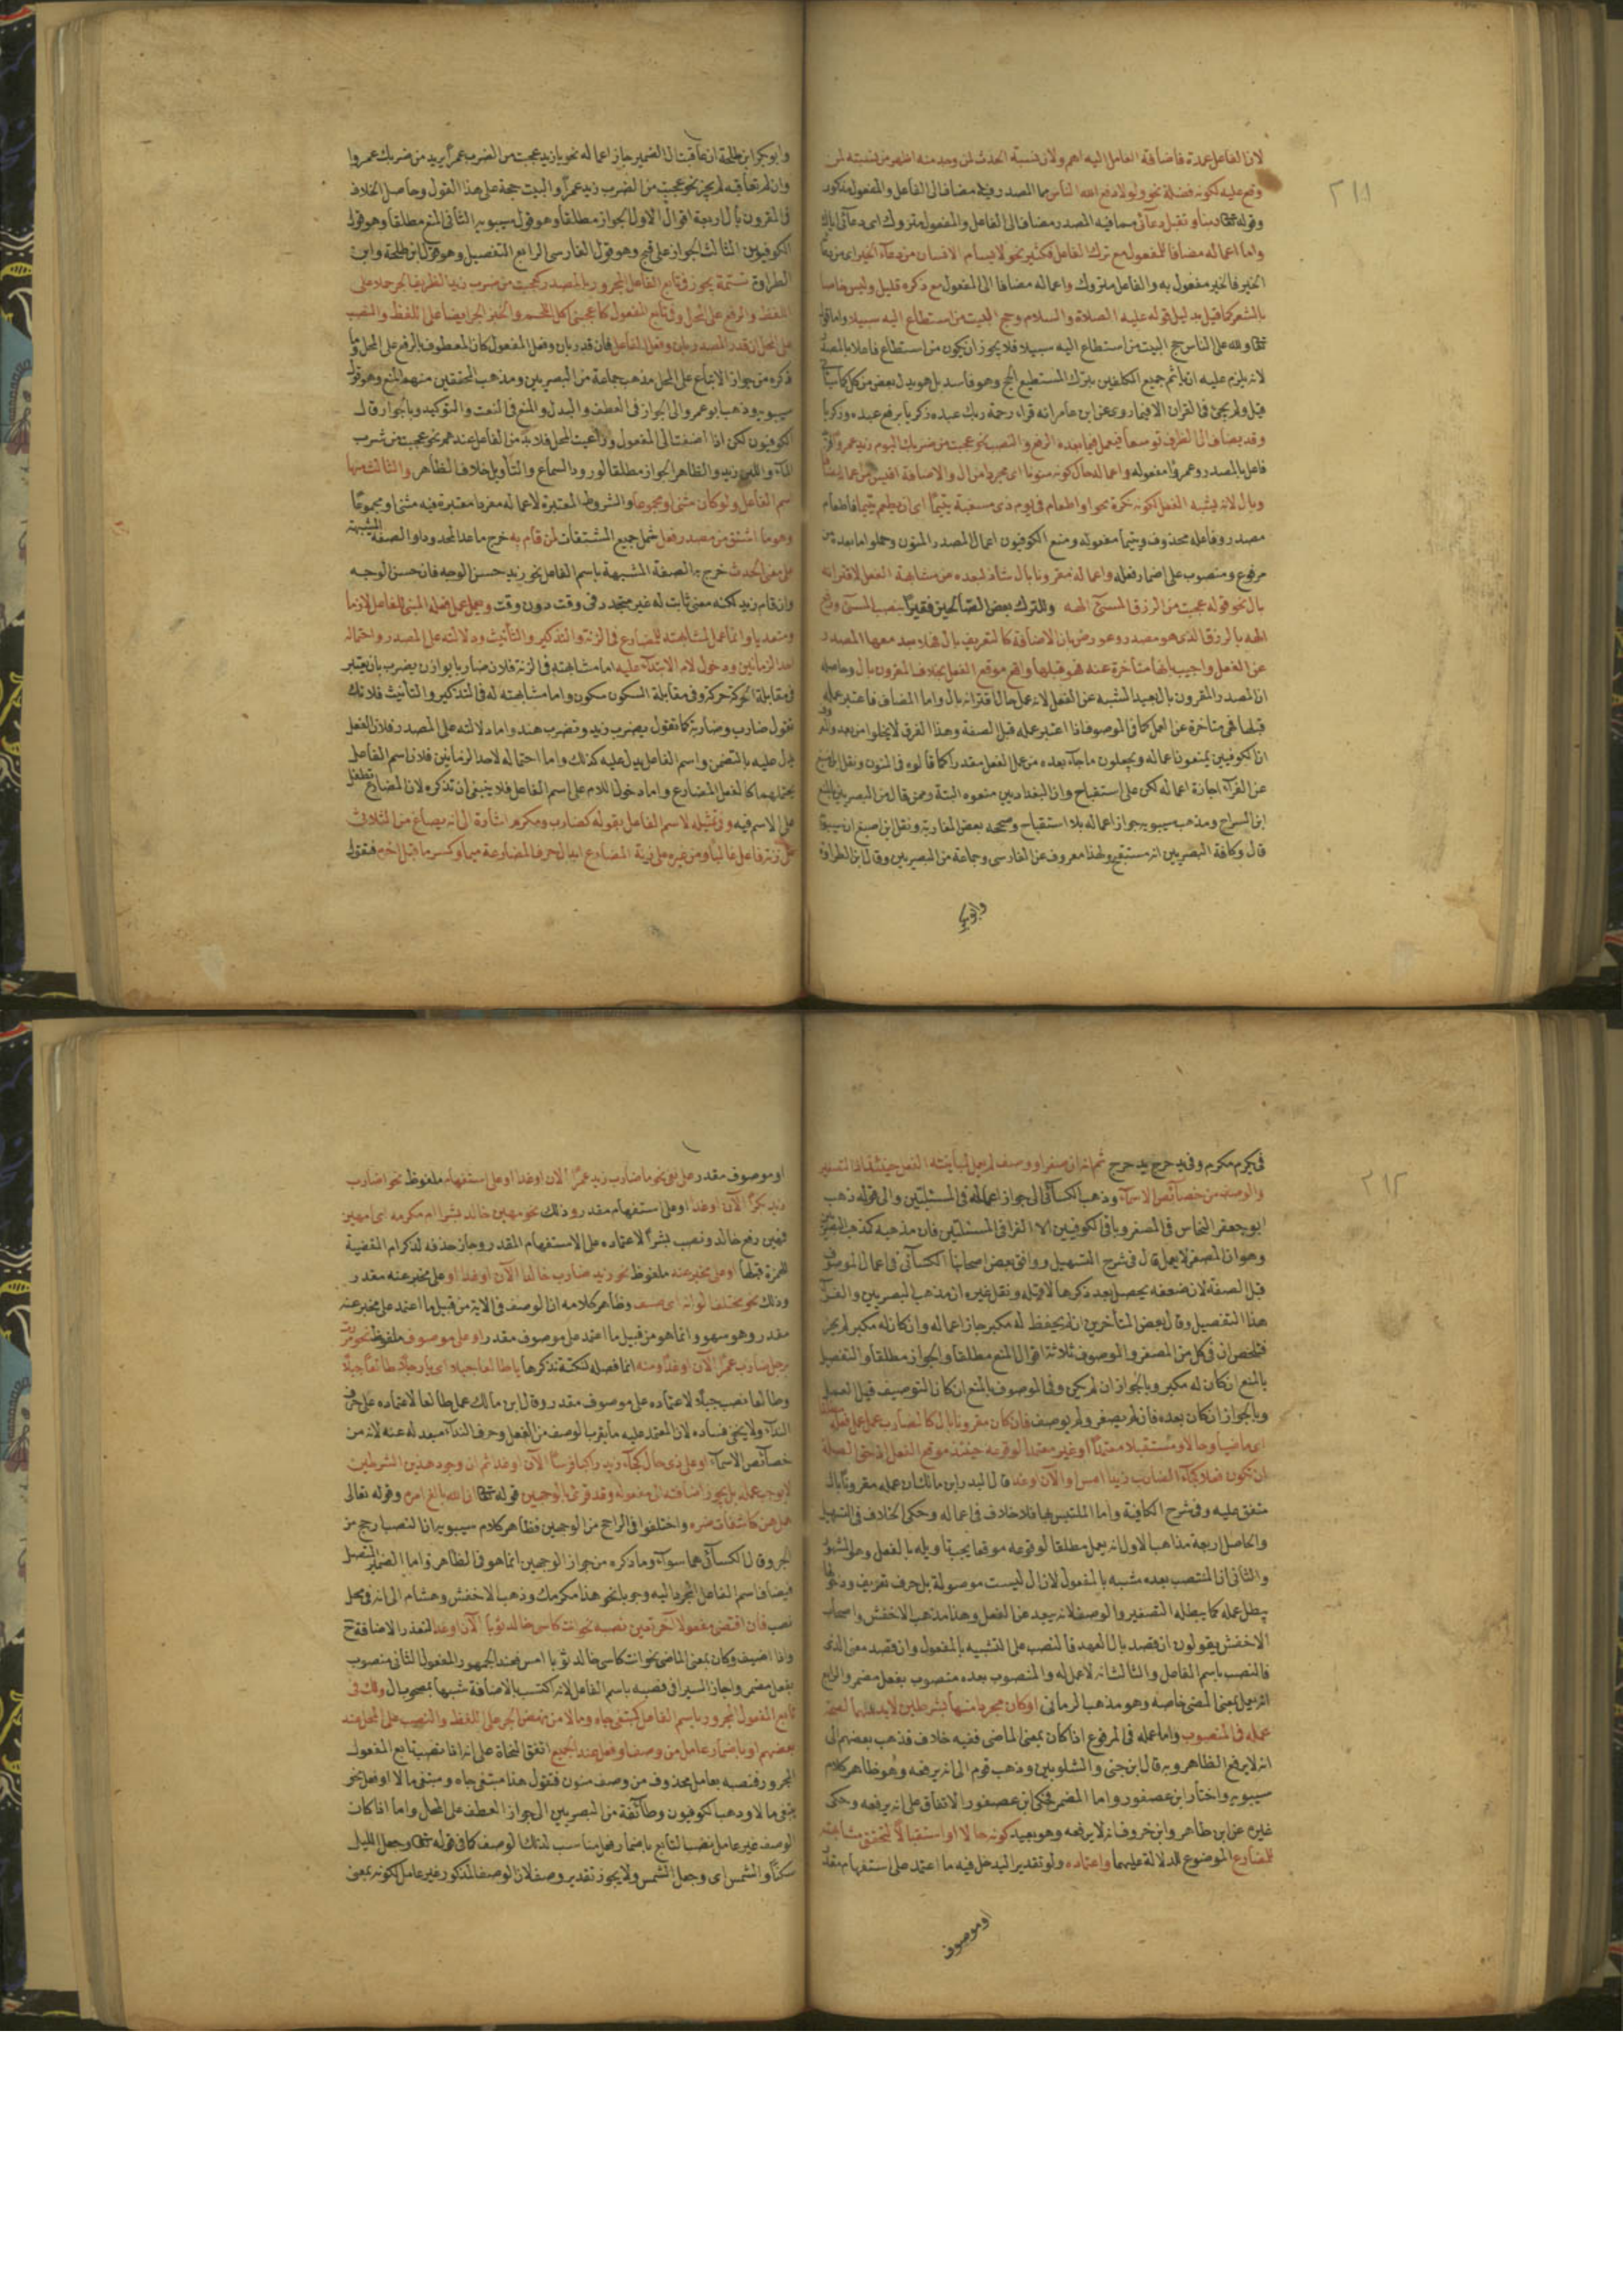 ٢١١
لان الفاعل عمدة فاضافة العامل اليه اهم ولان نسبة الحدث لمن وجد منه اظهر من نسبته لمن
وقع عليه لكونه فضلة نحو ولولا دفع الله الناس فهنا المصدر فيه مضاف الى الفاعل والمفعول مذكور
وقوله تعالى ربنا وتقبل دعائى مما فيه المصدر مضاف الى الفاعل والمفعول متروك اى دعائى اياك
واما اعماله مضافا للمفعول مع ترك الفاعل فكثير نحو لا يسأم الانسان من دعاء الخير اى من دعائه
الخير فالخير مفعول به والفاعل متروك واعماله مضافا الى المفعول مع ذكره قليل وليس خاصا
بالشعر كما قيل بدليل قوله عليه الصلاة والسلام وحج البيت من استطاع اليه سبيلا واما قوله
تعالى ولله على الناس حج البيت من استطاع اليه سبيلا فلا يجوز ان يكون من استطاع فاعلا بالمصدر
لانه يلزم عليه ان يأثم جميع المكلفين بترك المستطيع الحج وهو فاسد بل هو بدل بعض من كل كما سيأتى
قيل ولم يجئ فى القران الا فيما روى عن ابن عامر انه قراء رحمة ربك عبده زكريا برفع عبده وزكريا
وقد يضاف الى الظرف توسعا فيعمل فيما بعده الرفع والنصب نحو عجبت من ضربك اليوم زيد عمروا فزيد
فاعل بالمصدر وعمروا مفعوله واعماله حال كونه منونا اى مجردا من ال والاضافة اقيس من اعماله مضافا
وبال لانه يشبه الفعل لكونه نكرة نحو او اطعام فى يوم ذى مسغبة يتيما اى ان يطعم يتيما فاطعام
مصدر وفاعله محذوف ويتيما مفعوله ومنع الكوفيون اعمال المصدر المنون وحملوا ما بعده من
مرفوع ومنصوب على اضمار فعله واعماله مقرونا بال شاذ لبعده من مشابهة الفعل لاقترانه
بال نحو قوله عجبت من الرزق المسئ الهه وللترك بعض الصالحين فقيرا بنصب المسئ ورفع
الهه بالرزق الذى هو مصدر وعورض بان الاضافة كالتعريف بال فلا يبعد معها المصدر
عن الفعل واجيب بانها متأخرة عنه فهو قبلها واقع موقع الفعل بخلاف المقرون بال وحاصله
ان المصدر المقرون بال بعيد الشبه عن الفعل لانه عمل حال اقترانه بال واما المضاف فاعتبر عمله
قبلها فهى متأخرة عن العمل كما فى الموصوف اذا اعتبر عمله قبل الصفة وهذا الفرق لا يخلوا من بعد
ان الكوفيين يمنعون اعماله ويجعلون ما جاء بعده من عمل الفعل مقدرا كما قالوه فى المنون ونقل
عن الفراء اجازة اعماله لكن على استقباح وان البغداديين منعوه البتة وممن قال من البصريين بالمنع
ابن السراج ومذهب سيبويه جواز اعماله بلا استقباح وصححه بعض المغاربة ونقل ابن اصبغ ان سيبويه
قال وكافة البصريين انه مستقبح ولهذا معروف عن الفارسى وجماعة من البصريين وقال ابن الطراوة
وابوبكر
وابو بكر ابن طلحة ان عاقبت ال الضمير جاز اعماله نحو يا زيد عجبت من الضرب عمرا يريد من ضربك عمروا
وان لم تعاقبه لم يجز نحو عجبت من الضرب زيد عمرا والبيت حجة على هذا القول وحاصل الخلاف
فى المقرون بال اربعة اقوال الاول الجواز مطلقا وهو قول سيبويه الثانى المنع مطلقا وهو قول
الكوفيين الثالث الجواز على قبح وهو قول الفارسى الرابع التفصيل وهو قول ابن طلحة وابن
الطراوة تتمة يجوز فى تابع الفاعل المجرور بالمصدر كعجبت من ضرب زيد الظريف الجر حملا على
اللفظ والرفع على المحل وفى تابع المفعول كاعجبنى اكل اللحم والخبز الجر ايضا على اللفظ والنصب
على المحل ان قدر المصدر بان وفعل الفاعل فان قدر بان وفعل المفعول كان المعطوف بالرفع على المحل وما
ذكره من جواز الاتباع على المحل مذهب جماعة من البصريين ومذهب المحققين منهم المنع وهو قول
سيبويه وذهب ابو عمر والى الجواز فى العطف والبدل والمنع فى النعت والتوكيد وبالجواز قال
الكوفيون لكن اذا اضفت الى المفعول وراعيت المحل فلا بد من الفاعل عندهم نحو عجبت من شرب
الماء واللبن زيد والظاهر الجواز مطلقا لورود السماع والتأويل خلاف الظاهر والثالث منها
اسم الفاعل ولو كان مثنى او مجموعا والشروط المعتبرة لاعماله مفردا معتبرة فيه مثنى ومجموعا
وهو ما اشتق من مصدر فعل شمل جميع المشتقات لمن قام به خرج ما عدا المحدود او الصفة المشبهة
على معنى الحدث خرج به الصفة المشبهة باسم الفاعل نحو زيد حسن الوجه فان حسن الوجه
وان قام زيد لكنه معنى ثابت له غير متجدد فى وقت دون وقت ويعمل عمل فعله المبنى للفاعل لازما
ومتعديا وانما عمل لمشابهته للمضارع فى الزنة والتذكير والتأنيث ودلالته على المصدر واحتماله
احد الزمانين ودخول لام الابتداء عليه اما مشابهته فى الزنة فلان ضاربا يوازن يضرب بان يعتبر
فى مقابلة الحركة حركة وفى مقابلة السكون سكون واما مشابهته له فى التذكير والتأنيث فلانك
تقول ضارب وضاربة كما تقول يضرب زيد وتضرب هند واما دلالته على المصدر فلان الفعل
يدل عليه بالتضمن واسم الفاعل يدل عليه كذلك واما احتماله لاحد الزمانين فلان اسم الفاعل
يحتملهما كالفعل المضارع واما دخول اللام على اسم الفاعل فلا ينبغى ان تذكره لان المضارع تطفل
على الاسم فيه وفى تمثيله لاسم الفاعل بقوله كضارب ومكرم اشارة الى انه يصاغ من الثلاثى
على زنة فاعل غالبا ومن غيره على زنة المضارع ابدال حرف المضارعة ميما وكسر ما قبل اخره فتقول
٢١٢
فى يكرم مكرم وفى يدحرج مدحرج ثم انه ان صغر او وصف لم يعمل لمباينته الفعل حينئذ اذ التصغير
والوصف من خصائص الاسماء وذهب الكسائى الى جواز اعماله فى المسئلتين والى قوله ذهب
ابو جعفر النحاس فى المصغر وباقى الكوفيين الا الفرا فى المسئلتين فان مذهبه كمذهب البصريين
وهو ان المصغر لا يعمل قال فى شرح التسهيل ووافق بعض اصحابنا الكسائى فى اعمال الموصوف
قبل الصفة لان ضعفه يحصل بعد ذكرها لا قبله ونقل غيره ان مذهب البصريين والفراء
هذا التفصيل وقال بعض المتأخرين ان لم يحفظ له مكبر جاز اعماله وان كان له مكبر لم يجز
فتلخص ان فى كل من المصغر والموصوف ثلاثة اقوال المنع مطلقا والجواز مطلقا والتفصيل
بالمنع ان كان له مكبر وبالجواز ان لم يكن وفى الموصوف بالمنع ان كان التوصيف قبل العمل
وبالجواز ان كان بعده فان لم يصغر ولم يوصف فان كان مقرونا بال كالضارب عمل عمل فعله
اى ماضيا وحالا ومستقبلا معتمدا او غير معتمد لوقوعه حينئذ موقع الفعل اذ حق الصلة
ان تكون جملة كجاء الضارب زيدا امس او الآن او غدا قال البدر ابن مالك ان عمله مقرونا بال
متفق عليه وفى شرح الكافية واما الملتبس بها فلا خلاف فى اعماله وحكى الخلاف فى التسهيل
والحاصل اربعة مذاهب الاول انه يعمل مطلقا لوقوعه موقعا يجب تأويله بالفعل وهو المشهور
والثانى ان المنتصب بعده مشبه بالمفعول لان ال ليست موصولة بل حرف تعريف ودخولها
يبطل عمله كما يبطله التصغير والوصف لانه يبعد عن الفعل وهذا مذهب الاخفش واصحاب
الاخفش يقولون ان قصد بال العهد فالنصب على التشبيه بالمفعول وان قصد معنى الذى
فالنصب باسم الفاعل والثالث انه لا عمل له والمنصوب بعده منصوب بفعل مضمر والرابع
انه يعمل بمعنى المضى خاصة وهو مذهب الرمانى او كان مجردا منها بشرطين لا بد منهما لصحة
عمله فى المنصوب واما عمله فى المرفوع اذا كان بمعنى الماضى ففيه خلاف فذهب بعضهم الى
انه لا يرفع الظاهر وبه قال ابن جنى والشلوبين وذهب قوم الى انه يرفعه وهو ظاهر كلام
سيبويه واختار ابن عصفور واما المضمر فحكى ابن عصفور الاتفاق على انه يرفعه وحكى
غيره عن ابن طاهر وابن خروف انه لا يرفعه وهو بعيد كونه حالا او استقبالا لتحقق مشابهته
للمضارع الموضوع للدلالة عليهما واعتماده ولو تقديرا ليدخل فيه ما اعتمد على استفهام مقدر
اوموصوف
او موصوف مقدر على نفى نحو ما ضارب زيد عمرا الآن او غدا او على استفهام ملفوظ نحو اضارب
زيد بكرا الآن او غدا او على استفهام مقدر وذلك نحو مهين خالد بشرا ام مكرمه اى امهين
فمهين رفع خالد ونصب بشرا لاعتماده على الاستفهام المقدر وجاز حذفه لذكر ام المقتضية
للهمزة قبلها او على مخبر عنه ملفوظ نحو زيد ضارب خالدا الآن او غدا او على مخبر عنه مقدر
وذلك نحو مختلف الوانه اى صنف وظاهر كلامه ان الوصف فى الاية من قبيل ما اعتمد على مخبر عنه
مقدر وهو سهو وانما هو من قبيل ما اعتمد على موصوف مقدر او على موصوف ملفوظ نحو مررت
برجل ضارب عمرا الآن او غدا ومنه انما فصله لنكتة تذكرها يا طالعا جبلا اى يا رجلا طالعا جبلا
وطالعا نصب جبلا لاعتماده على موصوف مقدر وقال ابن مالك عمل طالعا لاعتماده على حرف
النداء ولا يخفى فساده لان المعتمد عليه ما يقرب الوصف من الفعل وحرف النداء مبعد له عنه لانه من
خصائص الاسماء او على ذى حال كجاء زيد راكبا فرسا الآن او غدا ثم ان وجود هذين الشرطين
لا يوجب عمله بل يجوز اضافته الى مفعوله وقد قرئ بالوجهين قوله تعالى ان الله بالغ امره وقوله تعالى
هل هن كاشفات ضره واختلفوا فى الراجح من الوجهين فظاهر كلام سيبويه ان النصب ارجح من
الجر وقال الكسائى هما سواء وما ذكره من جواز الوجهين انما هو فى الظاهر واما الضمير المتصل
فيضاف اسم الفاعل المجرد اليه وجوبا نحو هذا مكرمك وذهب الاخفش وهشام الى انه فى محل
نصب فان اقتضى مفعولا آخر تعين نصبه نحو انت كاسى خالد ثوبا الآن او غدا لتعذر الاضافة ح
واذا اضيف وكان بمعنى الماضى نحو انت كاسى خالد ثوبا امس فعند الجمهور المفعول الثانى منصوب
بفعل مضمر واجاز السيرافى نصبه باسم الفاعل لانه اكتسب بالاضافة شبها بمصحوب ال ولك فى
تابع المفعول المجرور باسم الفاعل كمبتغى جاه ومالا من نهض الجر على اللفظ والنصب على المحل عند
بعضهم او باضمار عامل من وصف او فعل عند الجميع اتفق النحاة على انه اذا نصب تابع المفعول
المجرور فنصبه بعامل محذوف من وصف منون فتقول هذا مبتغى جاه ومبتغ مالا او فعل نحو
يبتغى مالا وذهب الكوفيون وطائفة من البصريين الى جواز العطف على المحل واما اذا كان
الوصف غير عامل نصب التابع باضمار فعل مناسب لذلك الوصف كما فى قوله تعالى وجعل الليل
سكنا والشمس اى وجعل الشمس ولا يجوز تقدير وصف لان الوصف المذكور غير عامل لكونه بمعنى